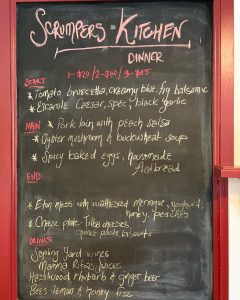 SCRUMPERS - KITCHEN
DINNER
1-$20/2-$40/3-$55
START
* Tomato bruscetta, creamy blue, fig balsamic
* Escarole Caesar, spec, black garlic
MAIN * Pork loin with peach salsa
* Oyster mushroom & buckwheat soup
* Spicy baked eggs, housemade
flatbread
END
* Eton mess with wattleseed meringue, yoghurt,
honey, peaches
* Cheese plate- Tilba cheeses,
biscuits
DRINKS
Yard wines
Mamma juices
Hazelwood rhubarb & ginger beer
Bees lemon & honey fizz